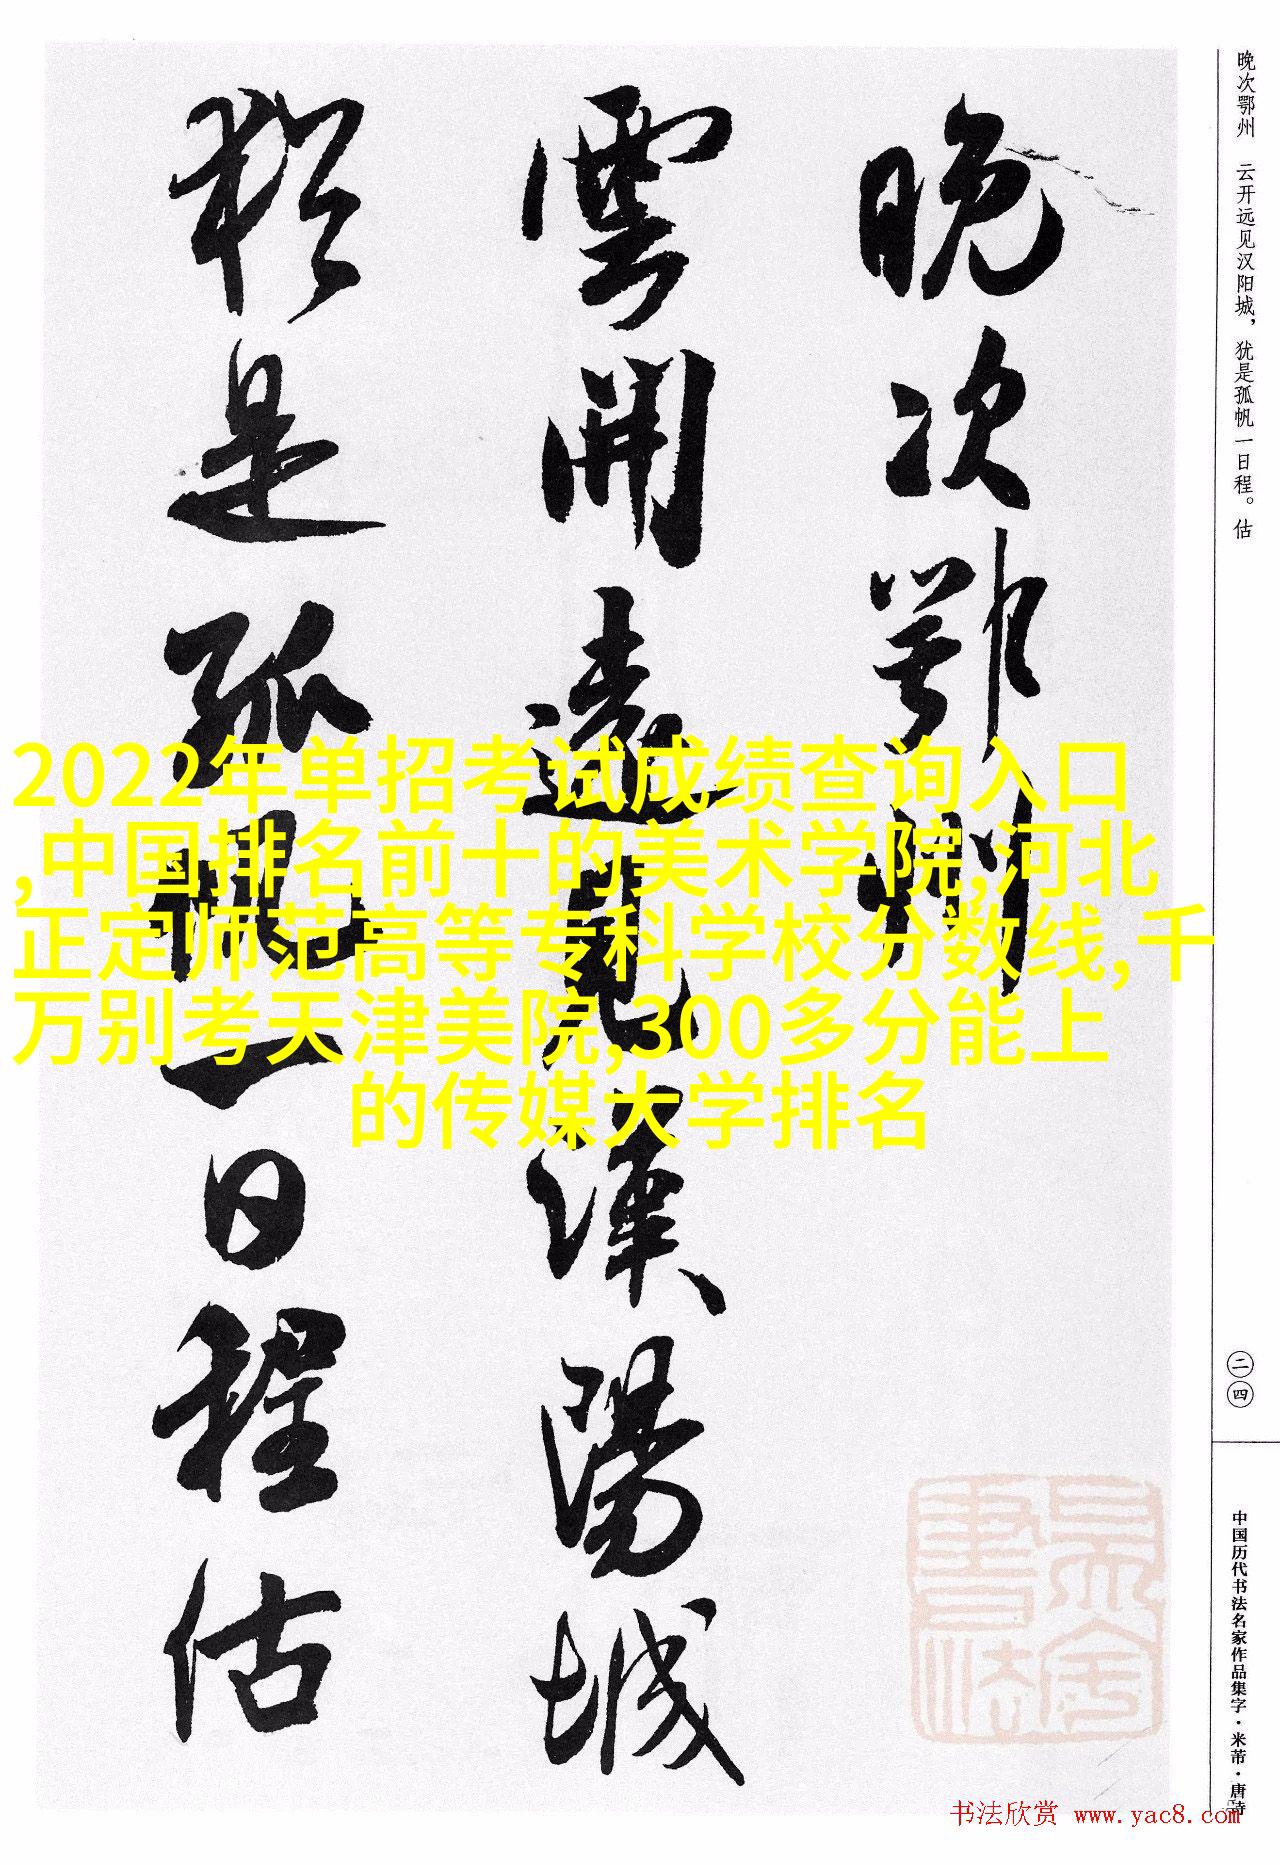 晚次鄂州
雲開遠見漢陽城
猶是孤帆一日程估
晚次鄂州 云开远见汉阳城，犹是孤帆一日程。估
二四
中国历代书法名家作品集字·米芾·唐诗
2022年单招考试成绩查询入口
,中国排名前十的美术学院,河北
正定师范高等专科学校分数线,千
万别考天津美院,300多分能上
的传媒大学排名
书法欣赏 www.yac8.com